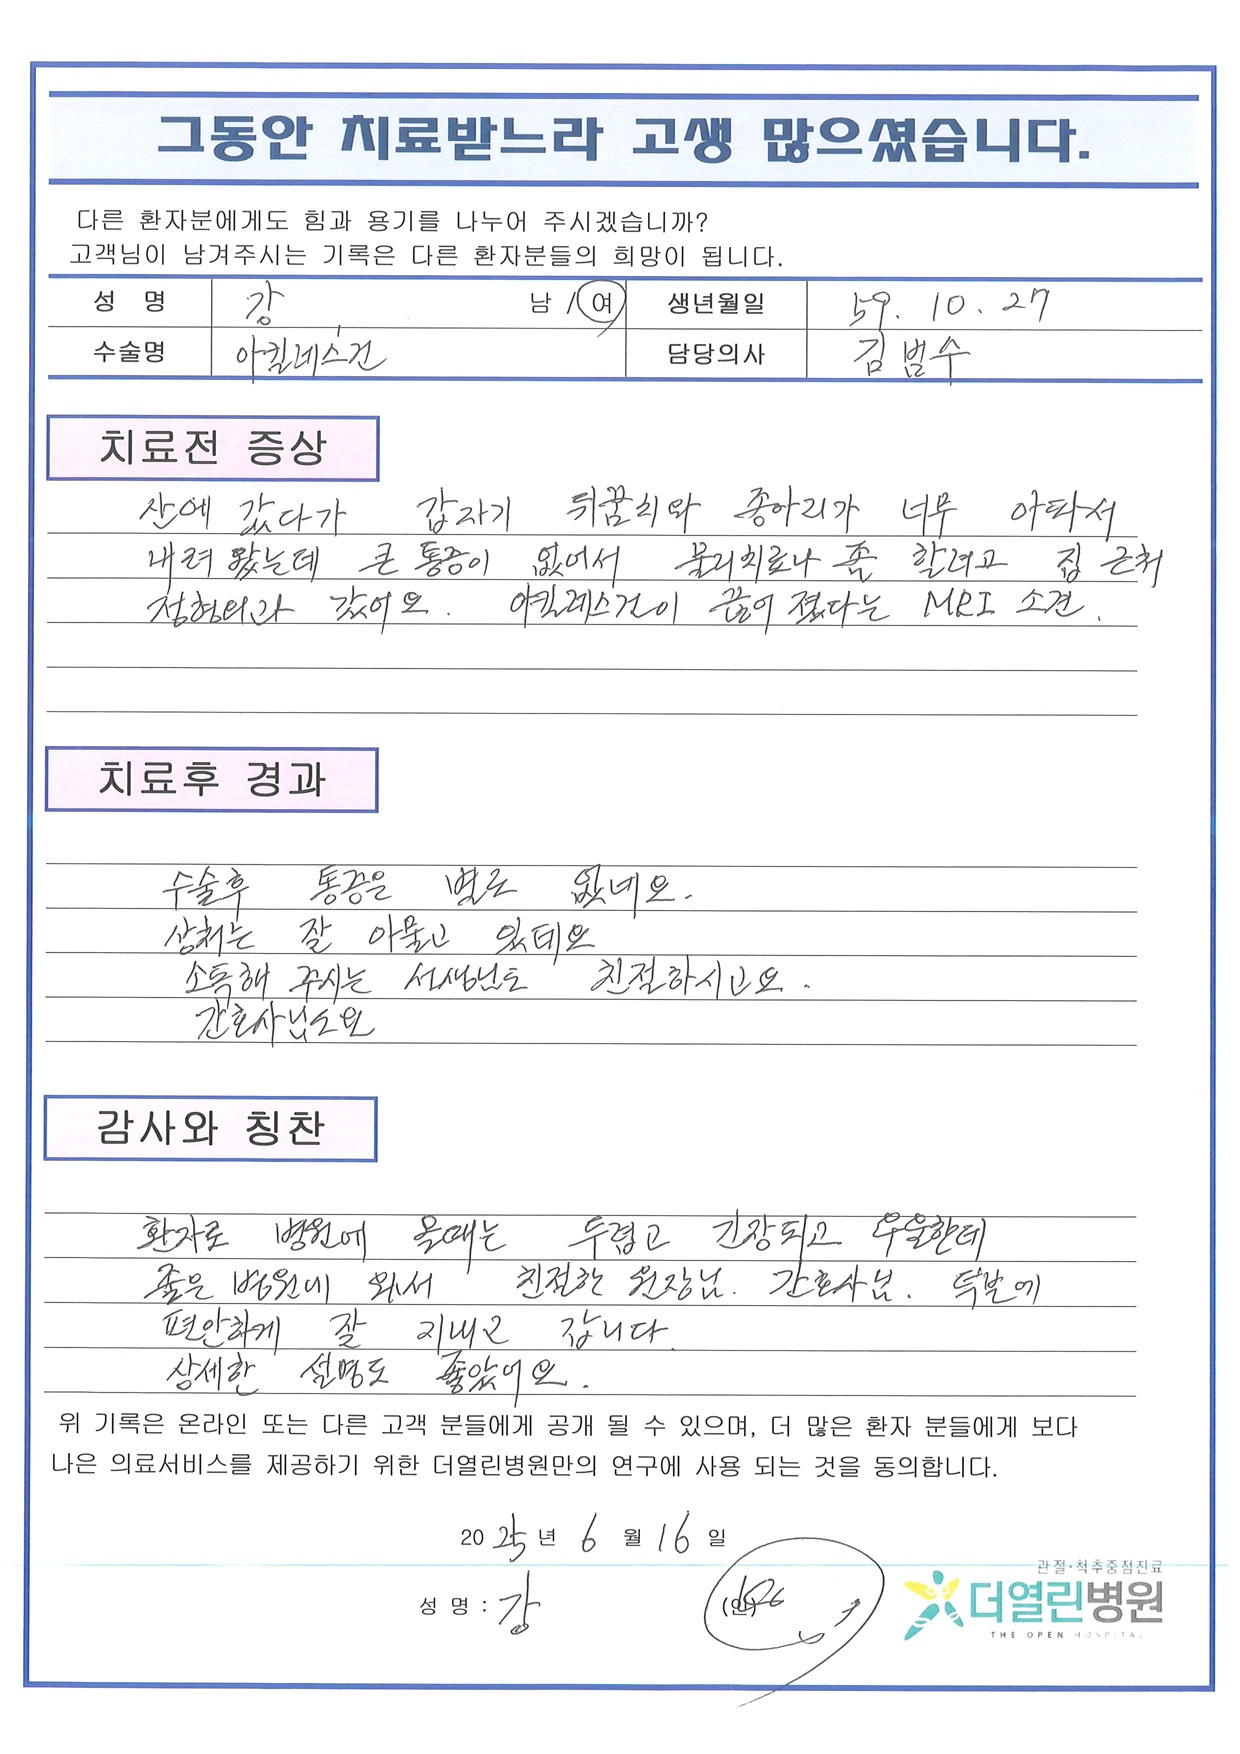 그동안 치료받느라 고생 많으셨습니다.
다른 환자분에게도 힘과 용기를 나누어 주시겠습니까?
고객님이 남겨주시는 기록은 다른 환자분들의 희망이 됩니다.
성 명 강 남 / 여 생년월일 59. 10. 27
수술명 아킬레스건 담당의사 김범수
치료전 증상
산에 갔다가 갑자기 뒤꿈치와 종아리가 너무 아파서
내려왔는데 큰 통증이 없어서 물리치료나 좀 할려고 집 근처
정형외과 갔어요. 아킬레스건이 끊어졌다는 MRI 소견.
치료후 경과
수술후 통증은 별로 없네요.
상처는 잘 아물고 있데요
소독해 주시는 선생님도 친절하시고요.
간호사님도요
감사와 칭찬
환자로 병원에 올때는 두렵고 긴장되고 우울한데
좋은 병원에 와서 친절한 원장님. 간호사님. 덕분에
편안하게 잘 지내고 갑니다.
상세한 설명도 좋았어요.
위 기록은 온라인 또는 다른 고객 분들에게 공개 될 수 있으며, 더 많은 환자 분들에게 보다
나은 의료서비스를 제공하기 위한 더열린병원만의 연구에 사용 되는 것을 동의합니다.
20 25 년 6 월 16 일
성 명 : 강 (인)
관절·척추중점진료
더열린병원
THE OPEN HOSPITAL